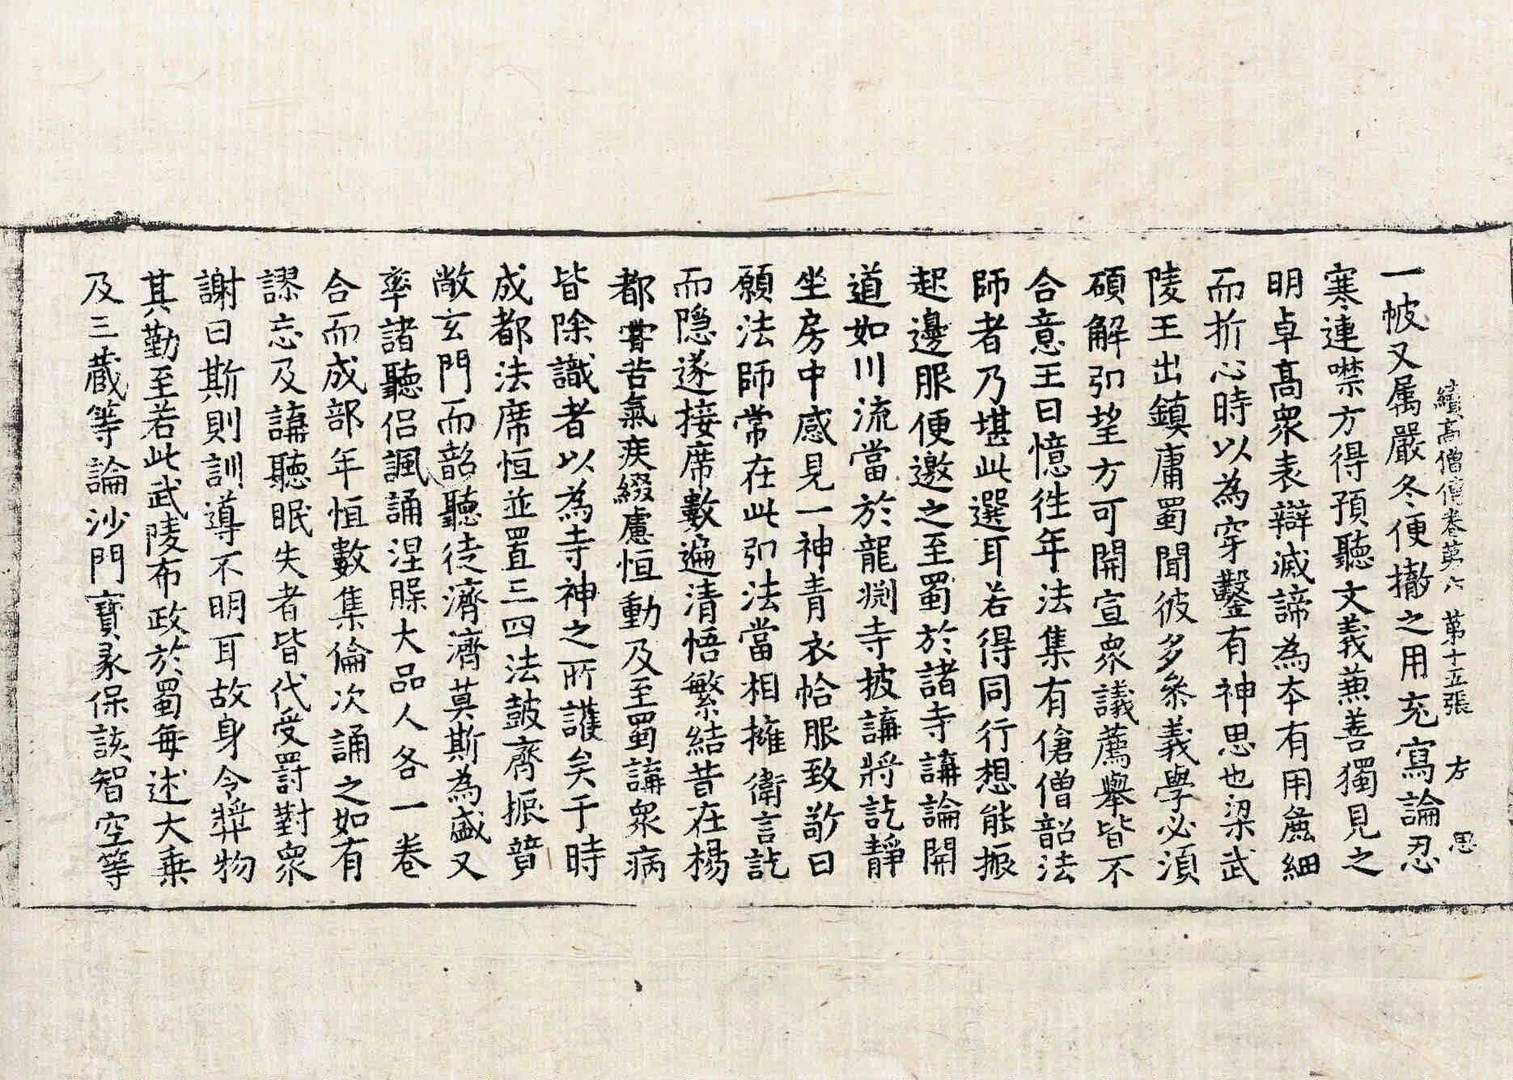 續高僧傳卷第六　第十五張　方　思
一帔又属嚴冬便撤之用充寫論忍
寒連噤方得預聽文義兼善獨見之
明卓髙衆表辯滅諦為夲有用麁細
而折心時以為穿鑿有神思也梁武
陵王出鎮庸蜀聞彼多叅義學必湏
碩解弘望方可開宣衆議薦舉皆不
合意王曰憶徃年法集有傖僧韶法
師者乃堪此選耳若得同行想能振
起邊服便邀之至蜀於諸寺講論開
道如川流當於龍㴝寺披講將訖靜
坐房中感見一神青衣恰服致敬曰
願法師常在此弘法當相擁衛言訖
而隱遂接席數遍清悟繁結昔在楊
都嘗苦氣疾綴慮恒動及至蜀講衆病
皆除識者以為寺神之所護矣于時
成都法席恒並置三四法鼓齊振賛
敞玄門而韶聽徒濟濟莫斯為盛又
率諸聽侣諷誦涅槃大品人各一卷
合而成部年恒數集倫次誦之如有
謬忘及講聽眠失者皆代受罰對衆
謝曰斯則訓導不明耳故身令奨物
其勤至若此武陵布政於蜀每述大乗
及三蔵等論沙門寶彖保該智空等